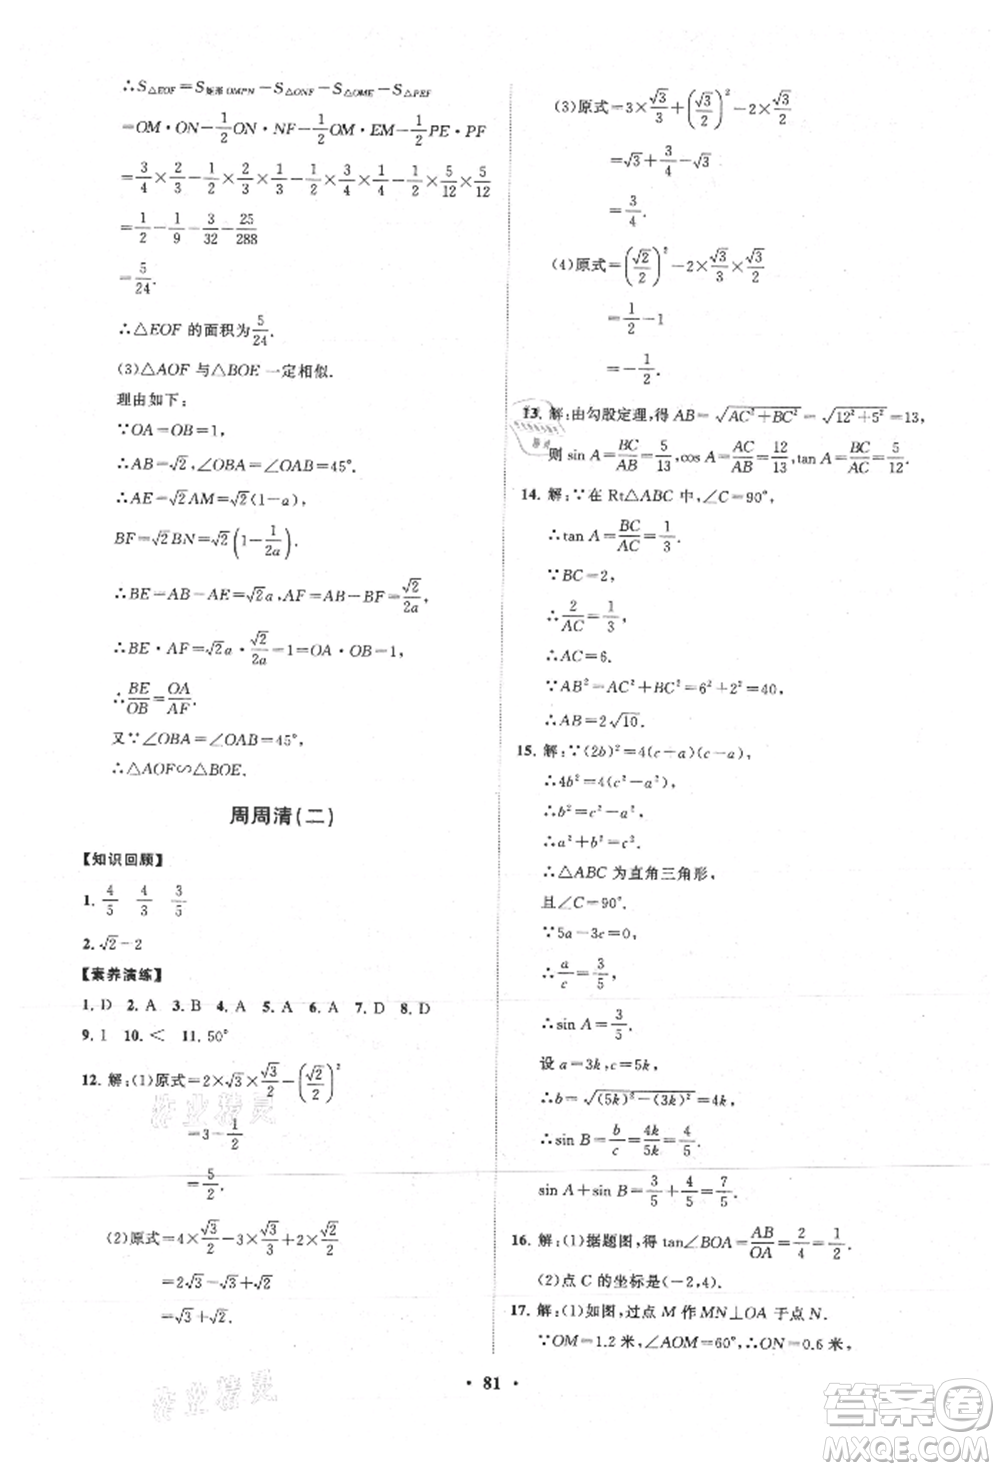 ∴S△EOF=S矩形OMPN-S△ONF-S△OME-S△PEF
=OM·ON-1/2 ON·NF-1/2 OM·EM-1/2 PE·PF
=3/4×2/3-1/2×2/3×1/3-1/2×3/4×1/4-1/2×5/12×5/12
=1/2-1/9-3/32-25/288
=5/24.
∴△EOF 的面积为5/24.
(3)△AOF 与△BOE 一定相似.
理由如下:
∵OA=OB=1,
∴AB=√2,∠OBA=∠OAB=45°.
∴AE=√2AM=√2(1-a),
BF=√2BN=√2(1-1/2a).
∴BE=AB-AE=√2a,AF=AB-BF=√2/2a,
∴BE·AF=√2a·√2/2a=1=OA·OB,
∴BE/OB=OA/AF.
又∵∠OBA=∠OAB=45°,
∴△AOF∽△BOE.
周周清(二)
【知识回顾】
1. 4/5 4/3 3/5
2. √2-2
【素养演练】
1. D 2. A 3. B 4. A 5. A 6. A 7. D 8. D
9. 1 10. < 11. 50°
12. 解:(1)原式=2×√3×√3/2-(√2/2)²
=3-1/2
=5/2.
(2)原式=4×√3/2-√3/2×2+√3
=2√3-√3+√3
=√3+√3.
(3)原式=3×√3/3+(√3/2)²-2×√3/2
=√3+3/4-√3
=3/4.
(4)原式=(√2/2)²-2×√3/3×√3/2
=1/2-1
=-1/2.
13. 解:由勾股定理,得 AB=√(AC²+BC²)=√(12²+5²)=13,
则 sin A=BC/AB=5/13,cos A=AC/AB=12/13,tan A=BC/AC=5/12.
14. 解:∵在 Rt△ABC 中,∠C=90°,
∴tan A=BC/AC=1/3.
∵BC=2,
∴2/AC=1/3,
∴AC=6.
∵AB²=AC²+BC²=6²+2²=40,
∴AB=2√10.
15. 解:∵(2b)²=4(c-a)(c-a),
∴4b²=4(c²-a²),
∴b²=c²-a²,
∴a²+b²=c²,
∴△ABC 为直角三角形,
且∠C=90°.
∵5a-3c=0,
∴a/c=3/5,
∴sin A=3/5.
设 a=3k,c=5k,
∴b=√((5k)²-(3k)²)=4k,
∴sin B=b/c=4k/5k=4/5,
sin A+sin B=3/5+4/5=7/5.
16. 解:(1)据题图,得 tan∠BOA=AB/OA=2/4=1/2.
(2)点 C 的坐标是(-2,4).
17. 解:(1)如图,过点 M 作 MN⊥OA 于点 N.
∵OM=1.2 米,∠AOM=60°,∴ON=0.6 米,
· 81 ·
作业精灵
作业精灵
答案圈
MXQE.COM